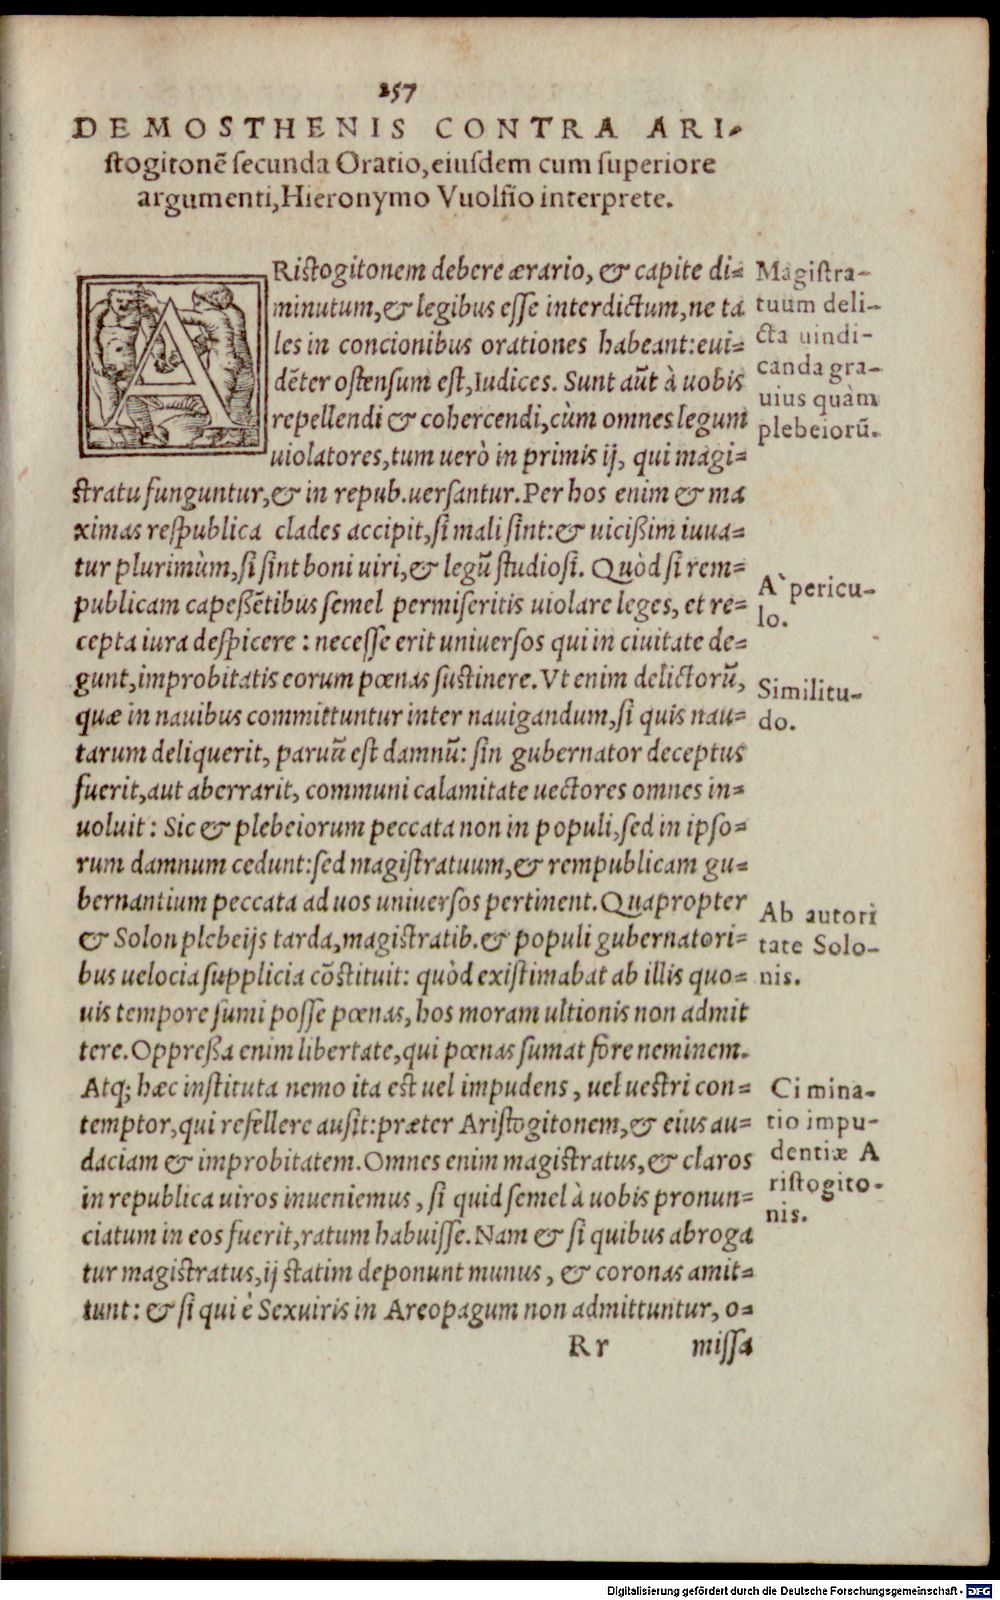 257
DEMOSTHENIS CONTRA ARI-
stogitonē secunda Oratio, eiusdem cum superiore
argumenti, Hieronymo Vuolfio interprete.
ARistogitonem debere ærario, & capite di=
minutum, & legibus esse interdictum, ne ta
les in concionibus orationes habeant: eui=
dēter ostensum est, Iudices. Sunt aūt à uobis
repellendi & cohercendi, cùm omnes legum
uiolatores, tum uerò in primis ij, qui magi=
stratu funguntur, & in repub. uersantur. Per hos enim & ma
ximas respublica clades accipit, si mali sint: & uicißim iuua=
tur plurimùm, si sint boni uiri, & legū studiosi. Quòd si rem=
publicam capeßētibus semel permiseritis uiolare leges, et re=
cepta iura despicere : necesse erit uniuersos qui in ciuitate de=
gunt, improbitatis eorum pœnas sustinere. Vt enim delictorū,
quæ in nauibus committuntur inter nauigandum, si quis nau=
tarum deliquerit, paruū est damnū: sin gubernator deceptus
fuerit, aut aberrarit, communi calamitate uectores omnes in=
uoluit : Sic & plebeiorum peccata non in populi, sed in ipso=
rum damnum cedunt: sed magistratuum, & rempublicam gu=
bernantium peccata ad uos uniuersos pertinent. Quapropter
& Solon plebeijs tarda, magistratib. & populi gubernatori=
bus uelocia supplicia cōstituit: quòd existimabat ab illis quo=
uis tempore sumi posse pœnas, hos moram ultionis non admit
tere. Oppreßa enim libertate, qui pœnas sumat fore neminem.
Atq; hæc instituta nemo ita est uel impudens, uel uestri con=
temptor, qui refellere ausit: præter Aristogitonem, & eius au=
daciam & improbitatem. Omnes enim magistratus, & claros
in republica uiros inueniemus, si quid semel à uobis pronun=
ciatum in eos fuerit, ratum habuisse. Nam & si quibus abroga
tur magistratus, ij statim deponunt munus, & coronas amit=
tunt: & si qui è Sexuiris in Areopagum non admittuntur, o=
Rr missa
Magistra-
tuum deli-
cta uindi-
canda gra-
uius quàm
plebeiorū.
A` pericu-
lo.
Similitu-
do.
Ab autori
tate Solo-
nis.
Ci mina-
tio impu-
dentiæ A
ristogito-
nis.
Digitalisierung gefördert durch die Deutsche Forschungsgemeinschaft - DFG